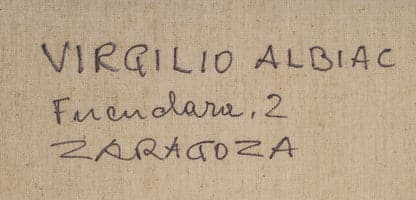 VIRGILIO ALBIAC
Fuenclara, 2
ZARAGOZA